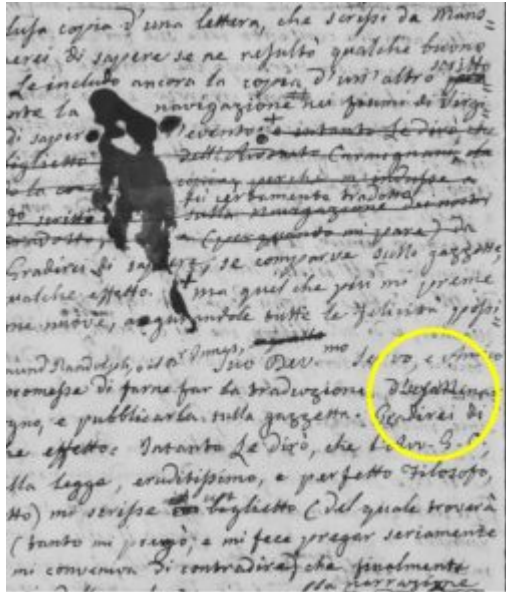 lusa copia d'una lettera, che scrissi da Mans=
erei di sapere se ne resultò qualche buono
Le includo ancora la copia d'un'altro scritto
nte la navigazione nei fiumi di Virgi=
di saper l'evento: e intanto Le dirò, che
biglietto dell'
e la co copia, perche m'indusse a
scritto fu certamente tradotto
sulla navigazione dei nostri
tradotto, e (per quanto mi pare) da
Gradirei di sapere, se comparve sulle gazzette,
ualche effetto. ma quel che più mi preme
me nuove, augurandole tutte le felicità possi=
Suo Dev.mo Servo, e Amico
mund Randolph,
promesse di farne far la traduzione
gno, e pubblicarla sulla gazzetta. Gradirei di
he effetto. Intanto Le dirò, che
lla legge, eruditissimo, e perfetto Filosofo,
tto) mi scrisse biglietto (del quale troverà
(tanto mi pregò, e mi fece pregar seriamente
mi conveniva di contradire) che finalmente
la narrazione